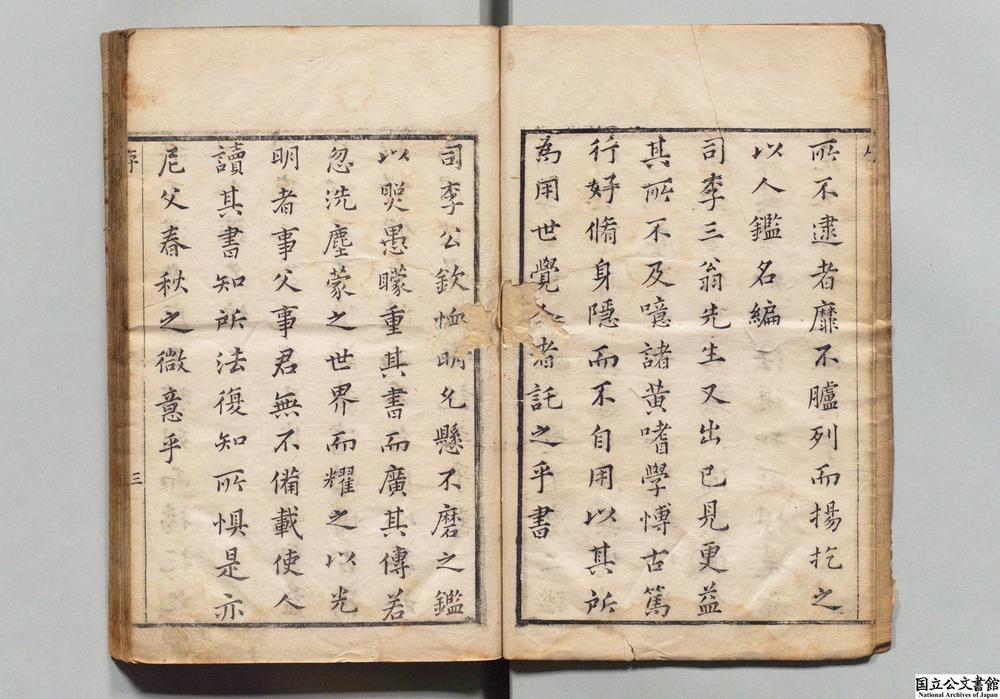 所不逮者靡不臚列而揚扢之
以人鑑名編
司李三翁先生又出已見更益
其所不及噫諸黃嗜學博古篤
行好脩身隱而不自用以其所
為用世覺人者託之乎書
司李公欽恤明允懸不磨之鑑
以煛愚矇重其書而廣其傳若
忽洗塵蒙之世界而耀之以光
明者事父事君無不備載使人
讀其書知所法復知所惧是亦
尼父春秋之微意乎
序
三
国立公文書館
National Archives of Japan